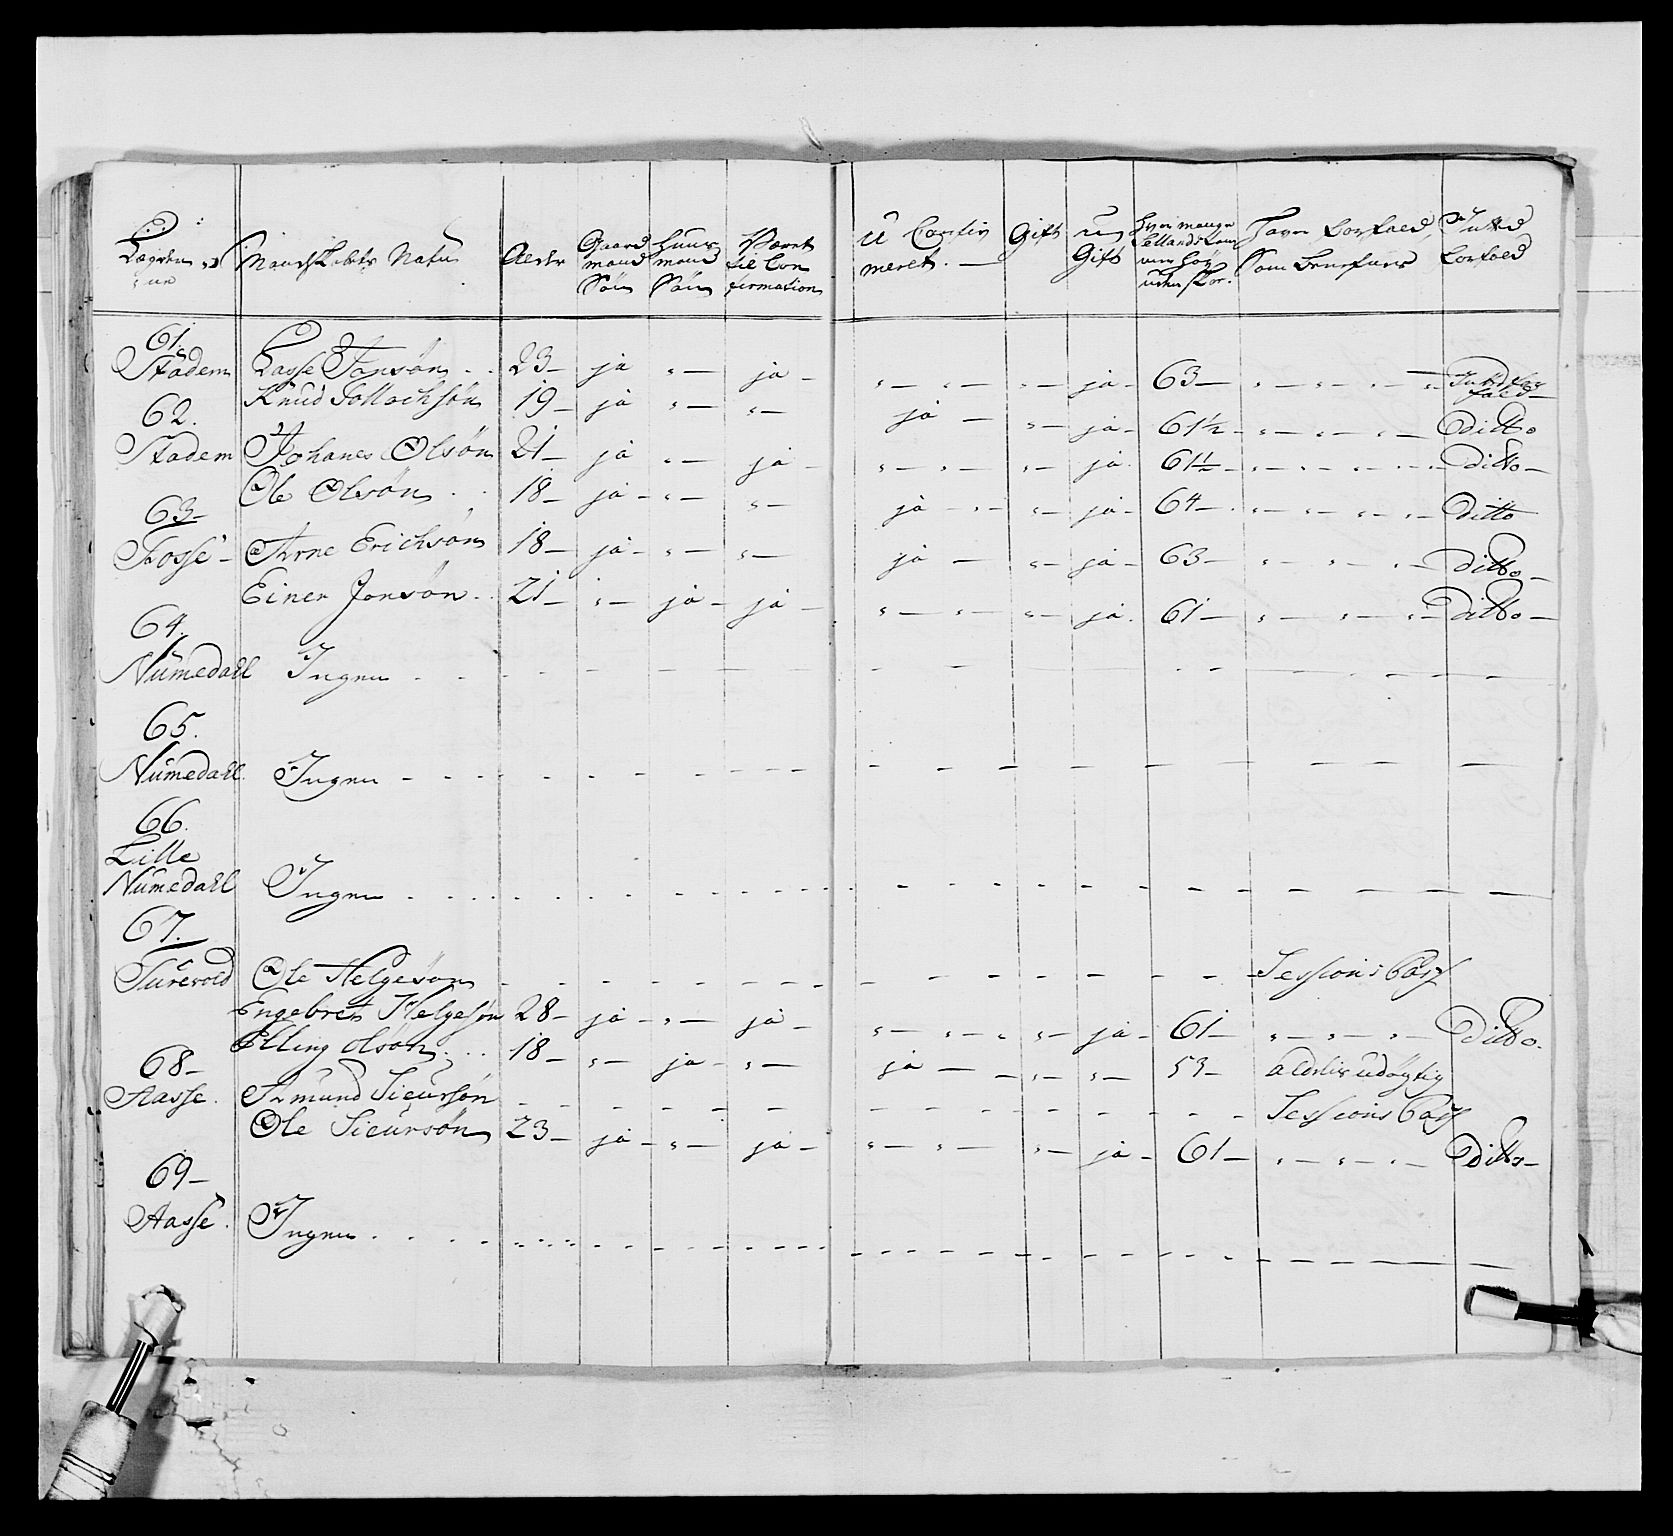 Mandskabets Nafn
Alder
Gaard mand Søn
Huus mand Søn
Været til Con firmation
U Confir meret. —
Gift
U Gift
Hvor mange
Som
Intet Forfald
61.
Stadem Lasse Jonsøn 23 — ja „ — ja — „ — „ — „ — ja — 63 — „ — „ — „ — „ — Intet for fald —
Knud Tollachsøn 19 — ja „ — „ — ja — „ — ja — 61½ — „ — „ — „ — Ditto
62.
Stadem Johanes Olsøn 21 — ja „ — ja — „ — „ — „ — ja. 61½ — „ — „ — „ — Ditto —
Ole Olsøn 18 — ja — „ — „ — ja — „ — „ — ja — 64 — „ — „ — „ — „ — Ditto
63 —
Fosse — Arne Erichsøn 18 — ja — „ — „ — ja — „ — ja — 63 — „ — „ — „ — Ditto —
Einer Jonsøn 21 — „ — ja — ja — „ — „ — „ — ja. 61 — „ — „ — „ — Ditto —
64.
Numedahl Ingen
65.
Numedahl. Ingen
66.
Lille
Numedahl Ingen
67.
Turevold Ole Helgesøn Sessions Pass
Engebret Helgesøn 28 — ja — „ — ja — „ — „ — „ — ja — 61 — „ — „ — „ — Ditto.
Elling Olsøn 18 — „ — ja — „ — ja — „ — „ — 53 — aldelis udøgtig
68 —
Aasse. Amund Sieursøn Sessions Pass
Ole Sieursøn 23 — ja — „ — ja — „ — „ — „ — ja — 61 — „ — „ — „ — Ditto —
69 —
Aasse. Ingen